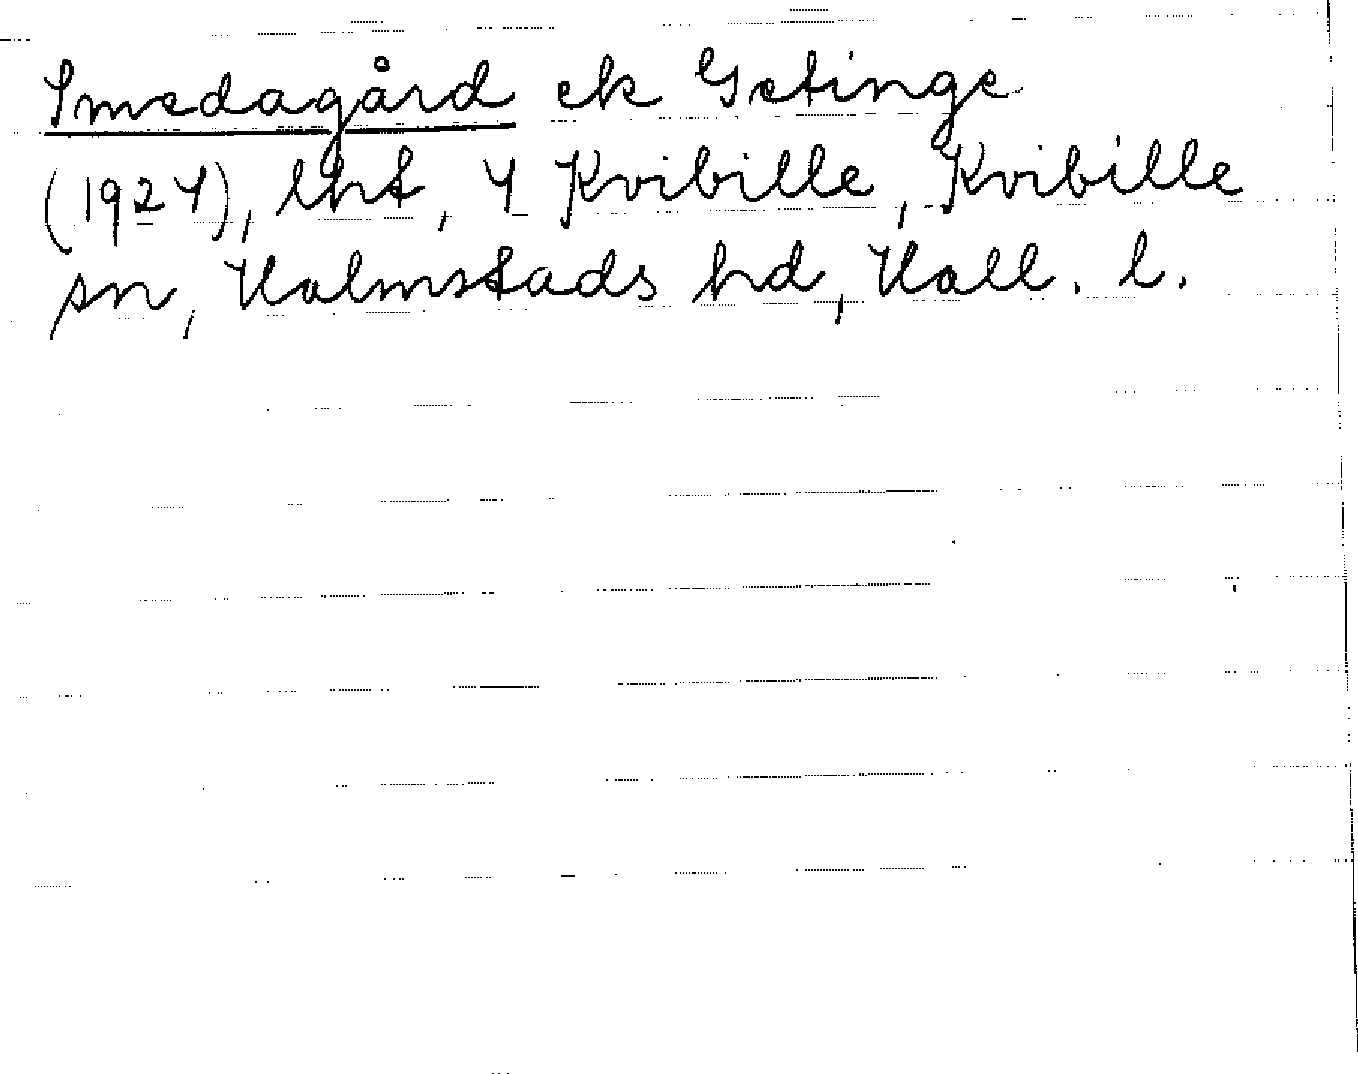 Smedagård ek Getinge
(1924), lht, 4 Kvibille, Kvibille
sn, Halmstads hd, Hall. l.